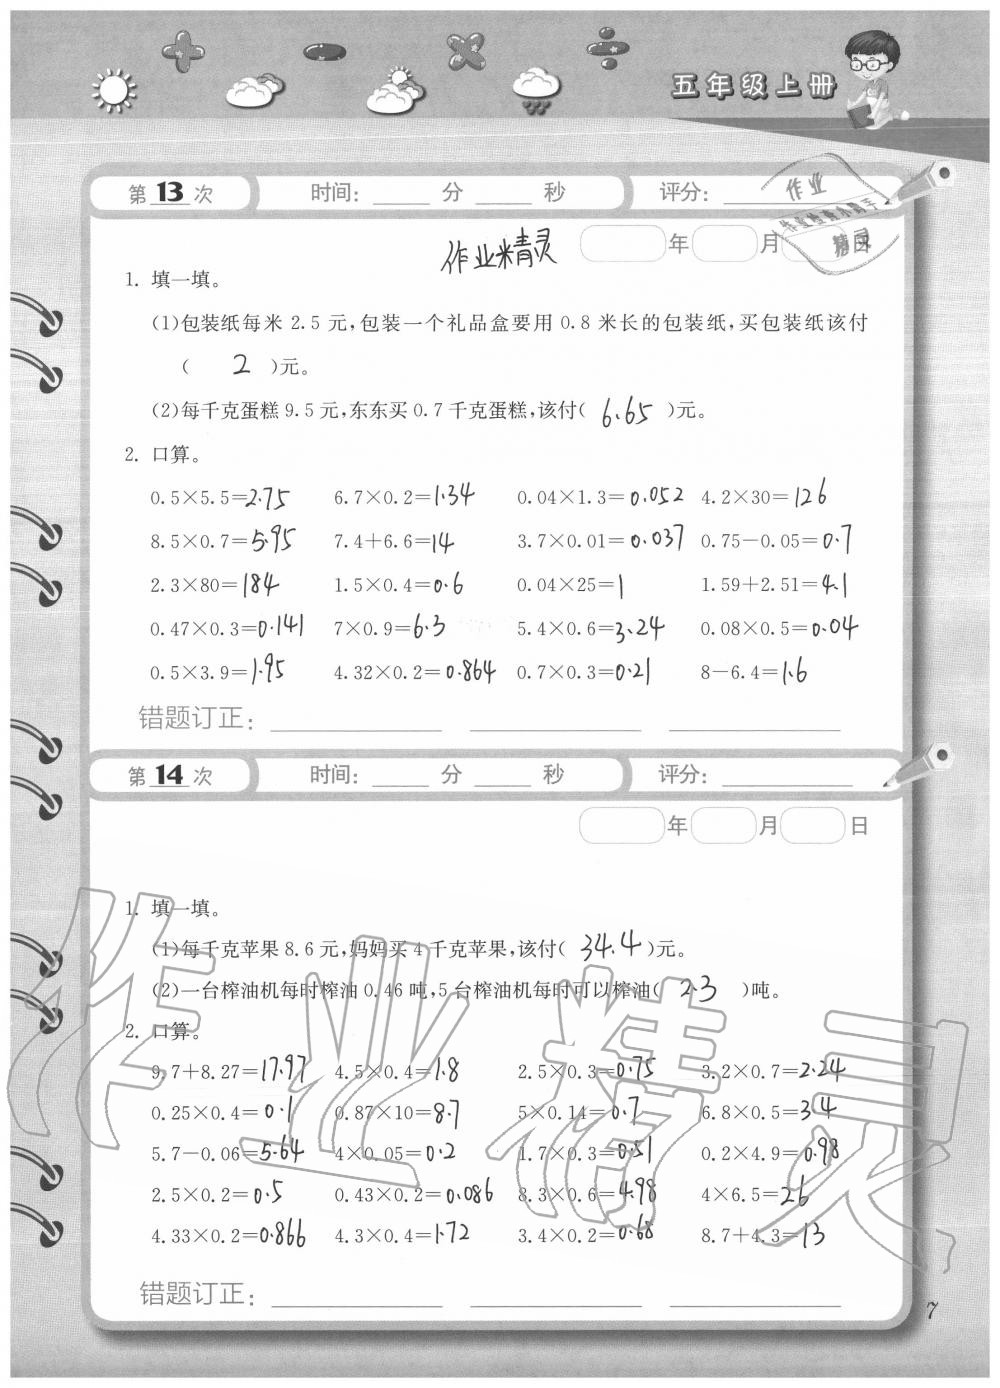 五年级上册
第 13 次 时间: 分 秒 评分:
作业
作业检查小助手
精灵
作业精灵 年 月
1. 填一填。
(1)包装纸每米 2.5 元,包装一个礼品盒要用 0.8 米长的包装纸,买包装纸该付
( 2 )元。
(2)每千克蛋糕 9.5 元,东东买 0.7 千克蛋糕,该付( 6.65 )元。
2. 口算。
0.5×5.5=2.75 6.7×0.2=1.34 0.04×1.3=0.052 4.2×30=126
8.5×0.7=5.95 7.4+6.6=14 3.7×0.01=0.037 0.75-0.05=0.7
2.3×80=184 1.5×0.4=0.6 0.04×25=1 1.59+2.51=4.1
0.47×0.3=0.141 7×0.9=6.3 5.4×0.6=3.24 0.08×0.5=0.04
0.5×3.9=1.95 4.32×0.2=0.864 0.7×0.3=0.21 8-6.4=1.6
错题订正:
第 14 次 时间: 分 秒 评分:
年 月 日
1. 填一填。
(1)每千克苹果 8.6 元,妈妈买 4 千克苹果,该付( 34.4 )元。
(2)一台榨油机每时榨油 0.46 吨,5 台榨油机每时可以榨油( 2.3 )吨。
2. 口算。
9.7+8.27=17.97 4.5×0.4=1.8 2.5×0.3=0.75 3.2×0.7=2.24
0.25×0.4=0.1 0.87×10=8.7 5×0.14=0.7 6.8×0.5=3.4
5.7-0.06=5.64 4×0.05=0.2 1.7×0.3=0.51 0.2×4.9=0.98
2.5×0.2=0.5 0.43×0.2=0.086 8.3×0.6=4.98 4×6.5=26
4.33×0.2=0.866 4.3×0.4=1.72 3.4×0.2=0.68 8.7+4.3=13
错题订正:
作业精灵
7